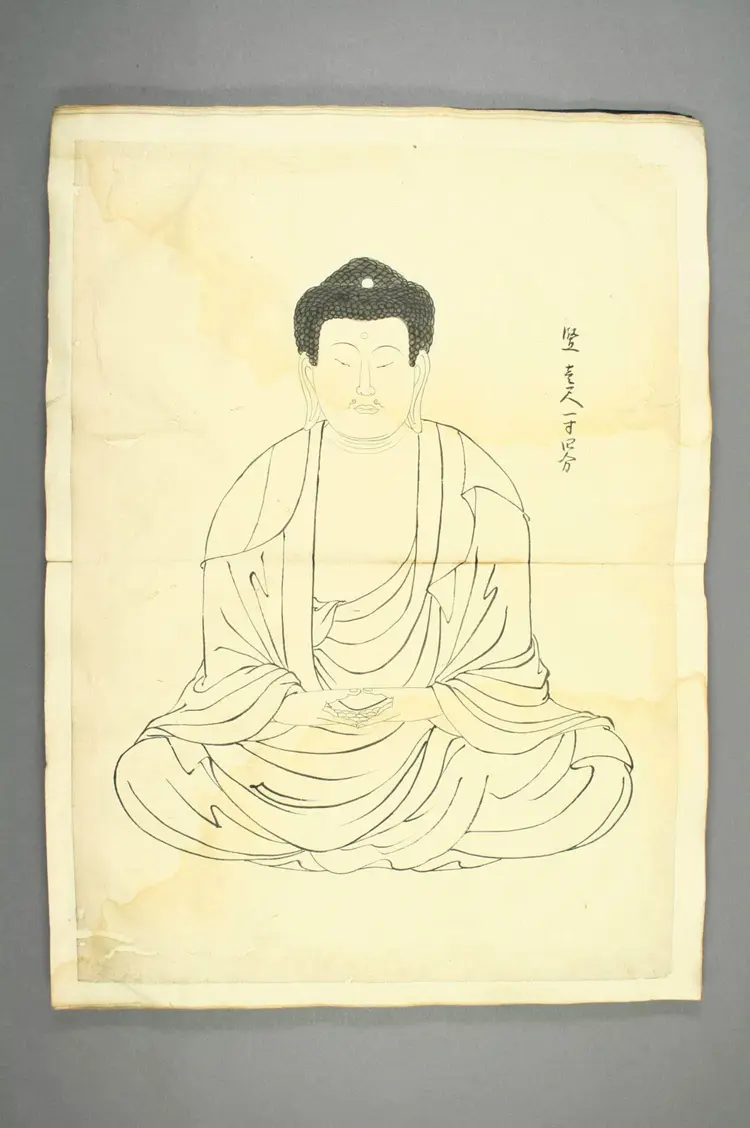 竪 壱尺一寸四分